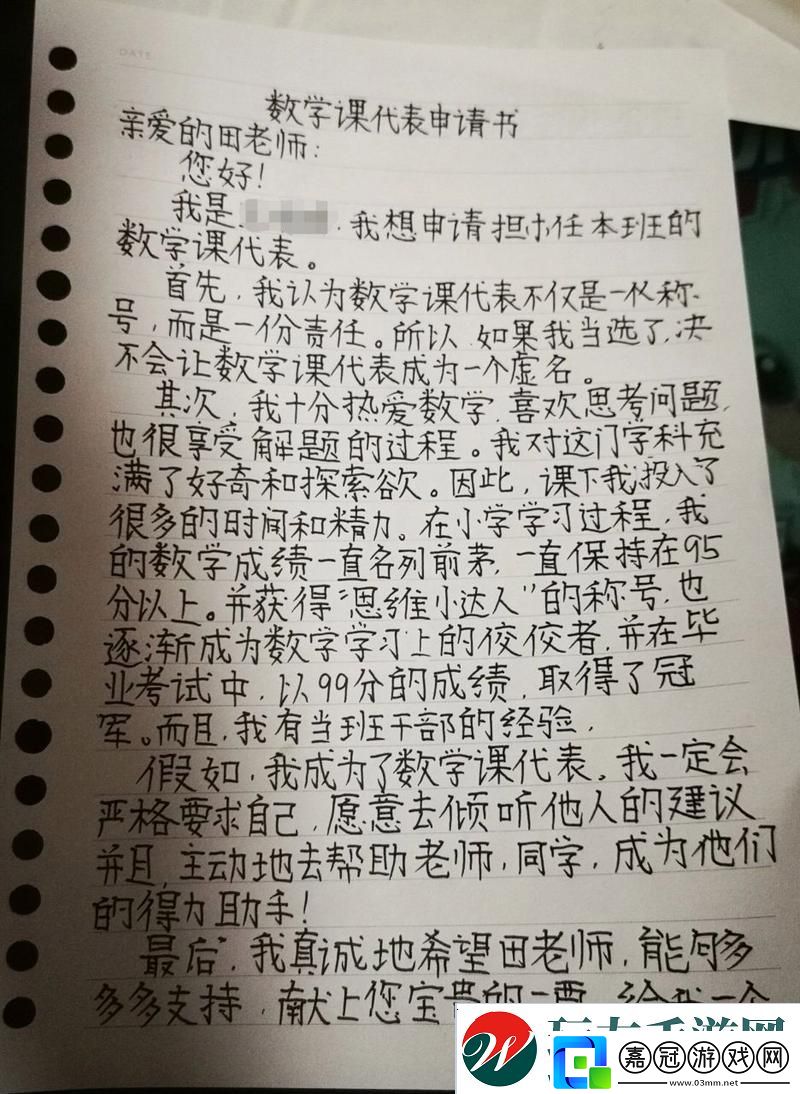 DATE
数学课代表申请书
亲爱的田老师：
您好！
我是 ，我想申请担任本班的
数学课代表。
首先，我认为数学课代表不仅是一份称
号，而是一份责任。所以，如果我当选了，决
不会让数学课代表成为一个虚名。
其次，我十分热爱数学，喜欢思考问题，
也很享受解题的过程。我对这门学科充
满了好奇和探索欲。因此，课下我投入了
很多的时间和精力。在小学学习过程，我
的数学成绩一直名列前茅，一直保持在95
分以上。并获得“思维小达人”的称号，也
逐渐成为数学学习上的佼佼者，并在毕
业考试中，以99分的成绩，取得了冠
军。而且，我有当班干部的经验，
假如，我成为了数学课代表。我一定会
严格要求自己，愿意去倾听他人的建议
并且，主动地去帮助老师，同学，成为他们
的得力助手！
最后，我真诚地希望田老师，能够多
多多支持，献上您宝贵的一票，给我一个
嘉冠游戏网
www.03mm.net